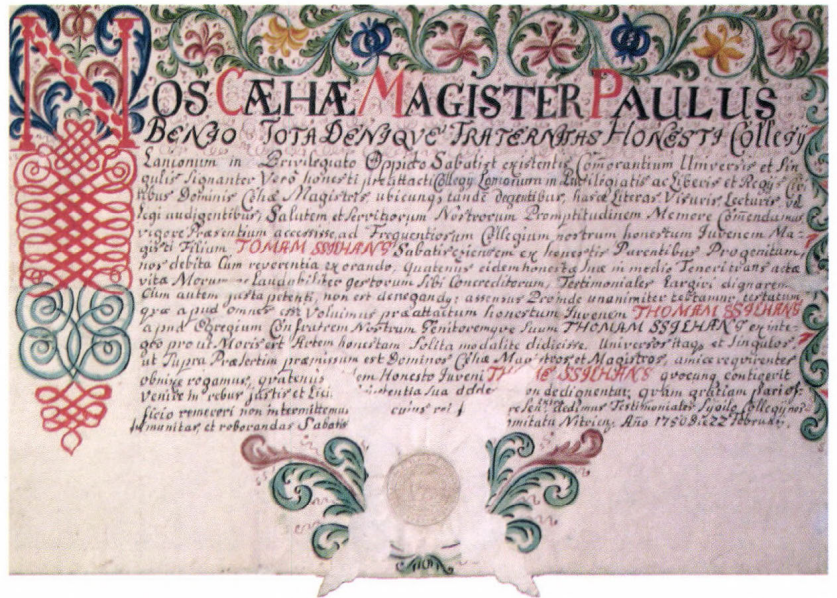 NOS CÆHÆ MAGISTER PAULUS
BENIO TOTA DENIQVE FRATERNITAS HONESTI Collegÿ
Lanionum in Privilegiato Oppido Sabatist existentis Comorantium Universis et Sin
gulis Signanter Vero honesti Collegÿ Lanionum in ac Liberis et Regÿs Civi
tibus Dominis Cæhæ Magistris, ubicunq; tande degentibus, hasce Literas Visuris Lecturis, vel
legi audientibus; Salutem et Servitiorum Nostrorum Promptitudinem Memore Comendamus
vigore Præsentium accessisse ad Frequentiorum Collegium nostrum honestum Juvenem Ma-
gistri Filium TOMAM SSILHANS Sabatisciensem ex honestis Parentibus Progenitum
nos debita Cum reverentia exorando, Quatenus eidem honesta Suæ in medio Teneri trans acta
vitæ Morum ac Laudabiliter gestorum Sibi Concreditorum Testimoniales Largiri dignaremur
Cum autem justa petenti, non est denegandg; assensus Proinde unanimiter testamur, testatum
qve apud omnes Voluimus præattactum honestum Juvenem THOMAM SSILHANS
apud Egregium Confratrem Nostrum Genitoremqve Suum THOMAM SSILHANS ex inte-
gro pro ut Moris est Artem honestam Solita modalite didicisse. Universos itaqs et Singulos,
ut Supra Præsertim præmissum est Dominos Cæhæ Magistros et Magistros, amice reqvirentes
obnixe rogamus, qvatenus dem Honesto Juveni SSILHANS qvocunq contigerit
venire in rebus justis et non dedignentur, qvam gratiam pari of-
ficio remereri non intermittemus cuius rei dedimus Testimoniales Sigillo Collegÿ nos
munitas, et roborandas Sabatis mitatu Nitrien; Año 1750 Die 22 Februar.